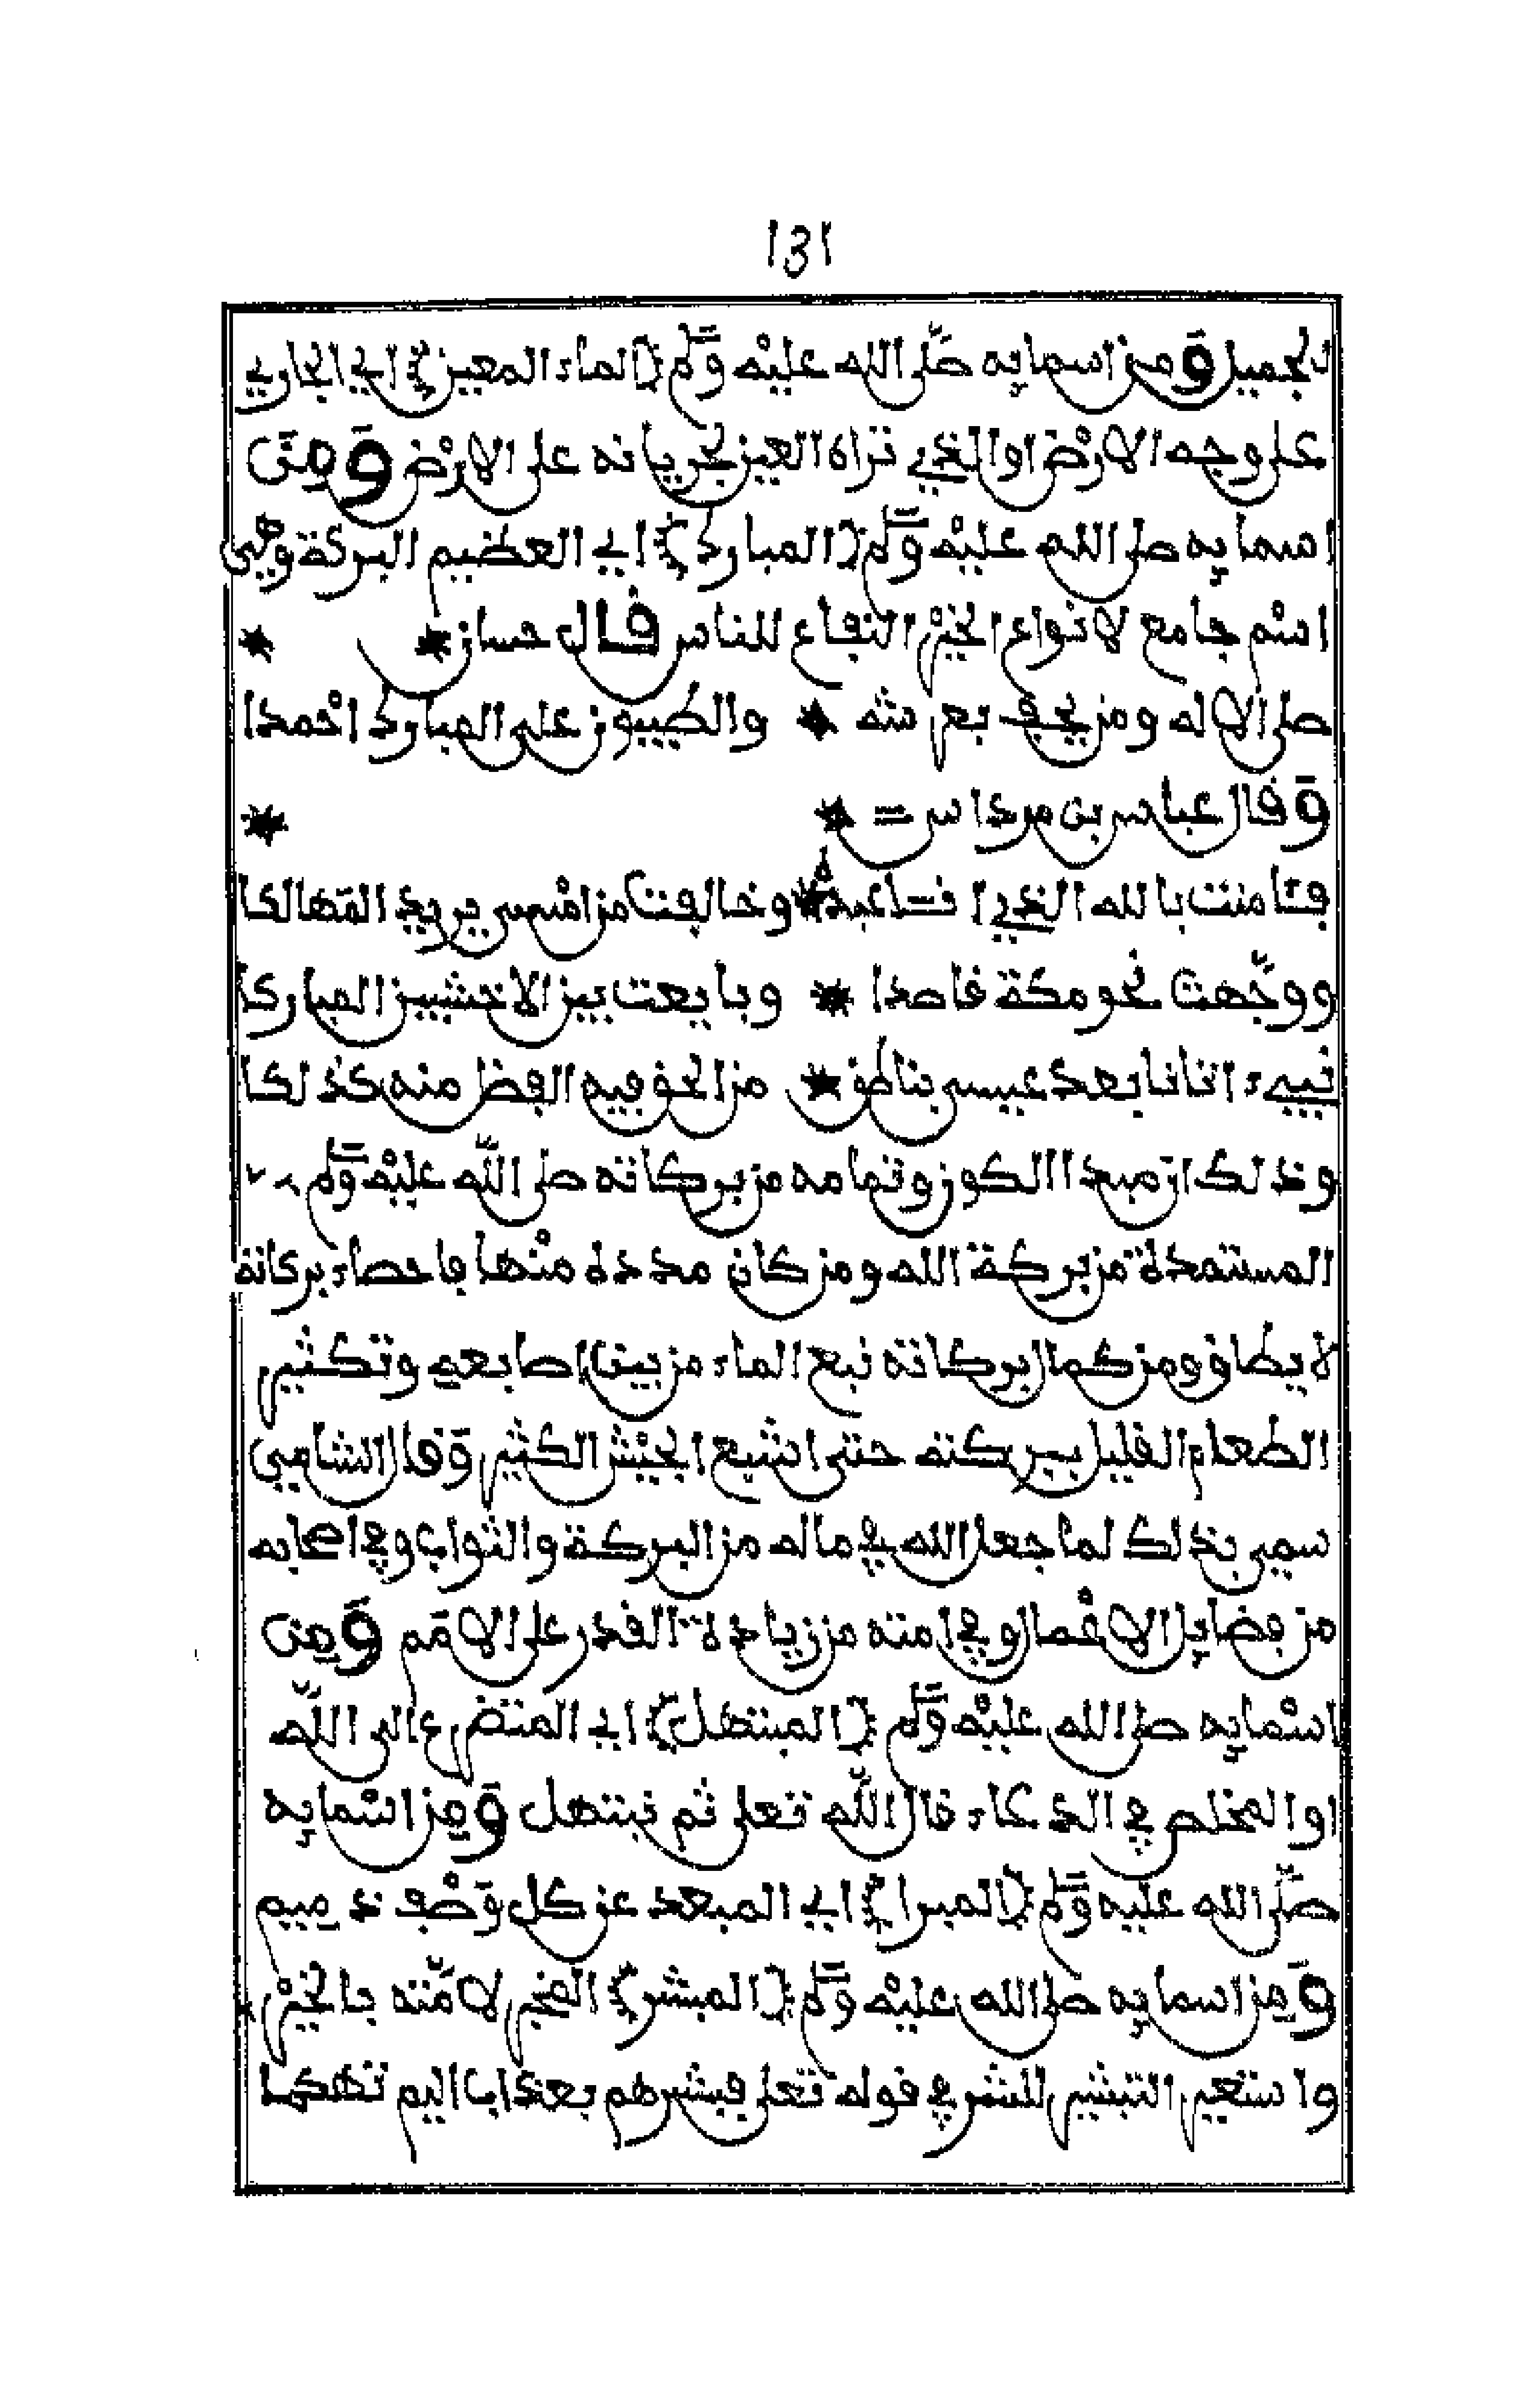 131
الجميل ومن اسمايه صلى الله عليه وسلم (الماء المعين) اي الجاري
على وجه الارض او الذي تراه العين لجريانه على الارض ومن
اسمايه صلى الله عليه وسلم (المبارك) اي العظيم البركة وهي
اسم جامع لانواع الخير النفاع للناس قال حسان * *
صلى الاله ومن يحف بعرشه * والطيبون على المبارك احمدا
وقال عباس بن مرداس = * *
فئامنت بالله الذي انا عبده * وخالفت من امسى يريد المهالكا
ووجهت نحو مكة قاصدا * وبايعت بين الاخشبين المباركا
نبيء اتانا بعد عيسى بناطق * من الحق فيه الفضل منه كذلكا
وذلك ان مبدا الكون وتمامه من بركاته صلى الله عليه وسلم
المستمدة من بركة الله ومن كان مدده منها فاحصاء بركاته
لا يطاق ومن كمال بركاته نبع الماء من بين اصابعه وتكثير
الطعام القليل ببركته حتى اشبع الجيش الكثير وقال الشامي
سمي بذلك لما جعل الله في ماله من البركة والثواب وفي اصحابه
من فضايل الاعمال وفي امته من زيادة القدر على الامم ومن
اسمايه صلى الله عليه وسلم (المبتهل) اي المتضرع الى الله
او المخلص في الدعاء قال الله تعلى ثم نبتهل ومن اسمايه
صلى الله عليه وسلم (المبرا) اي المبعد عن كل وصف ذميم
ومن اسمايه صلى الله عليه وسلم (المبشر) المخبر لامته بالخير
واستعير التبشير للشر في قوله تعلى فبشرهم بعذاب اليم تهكما